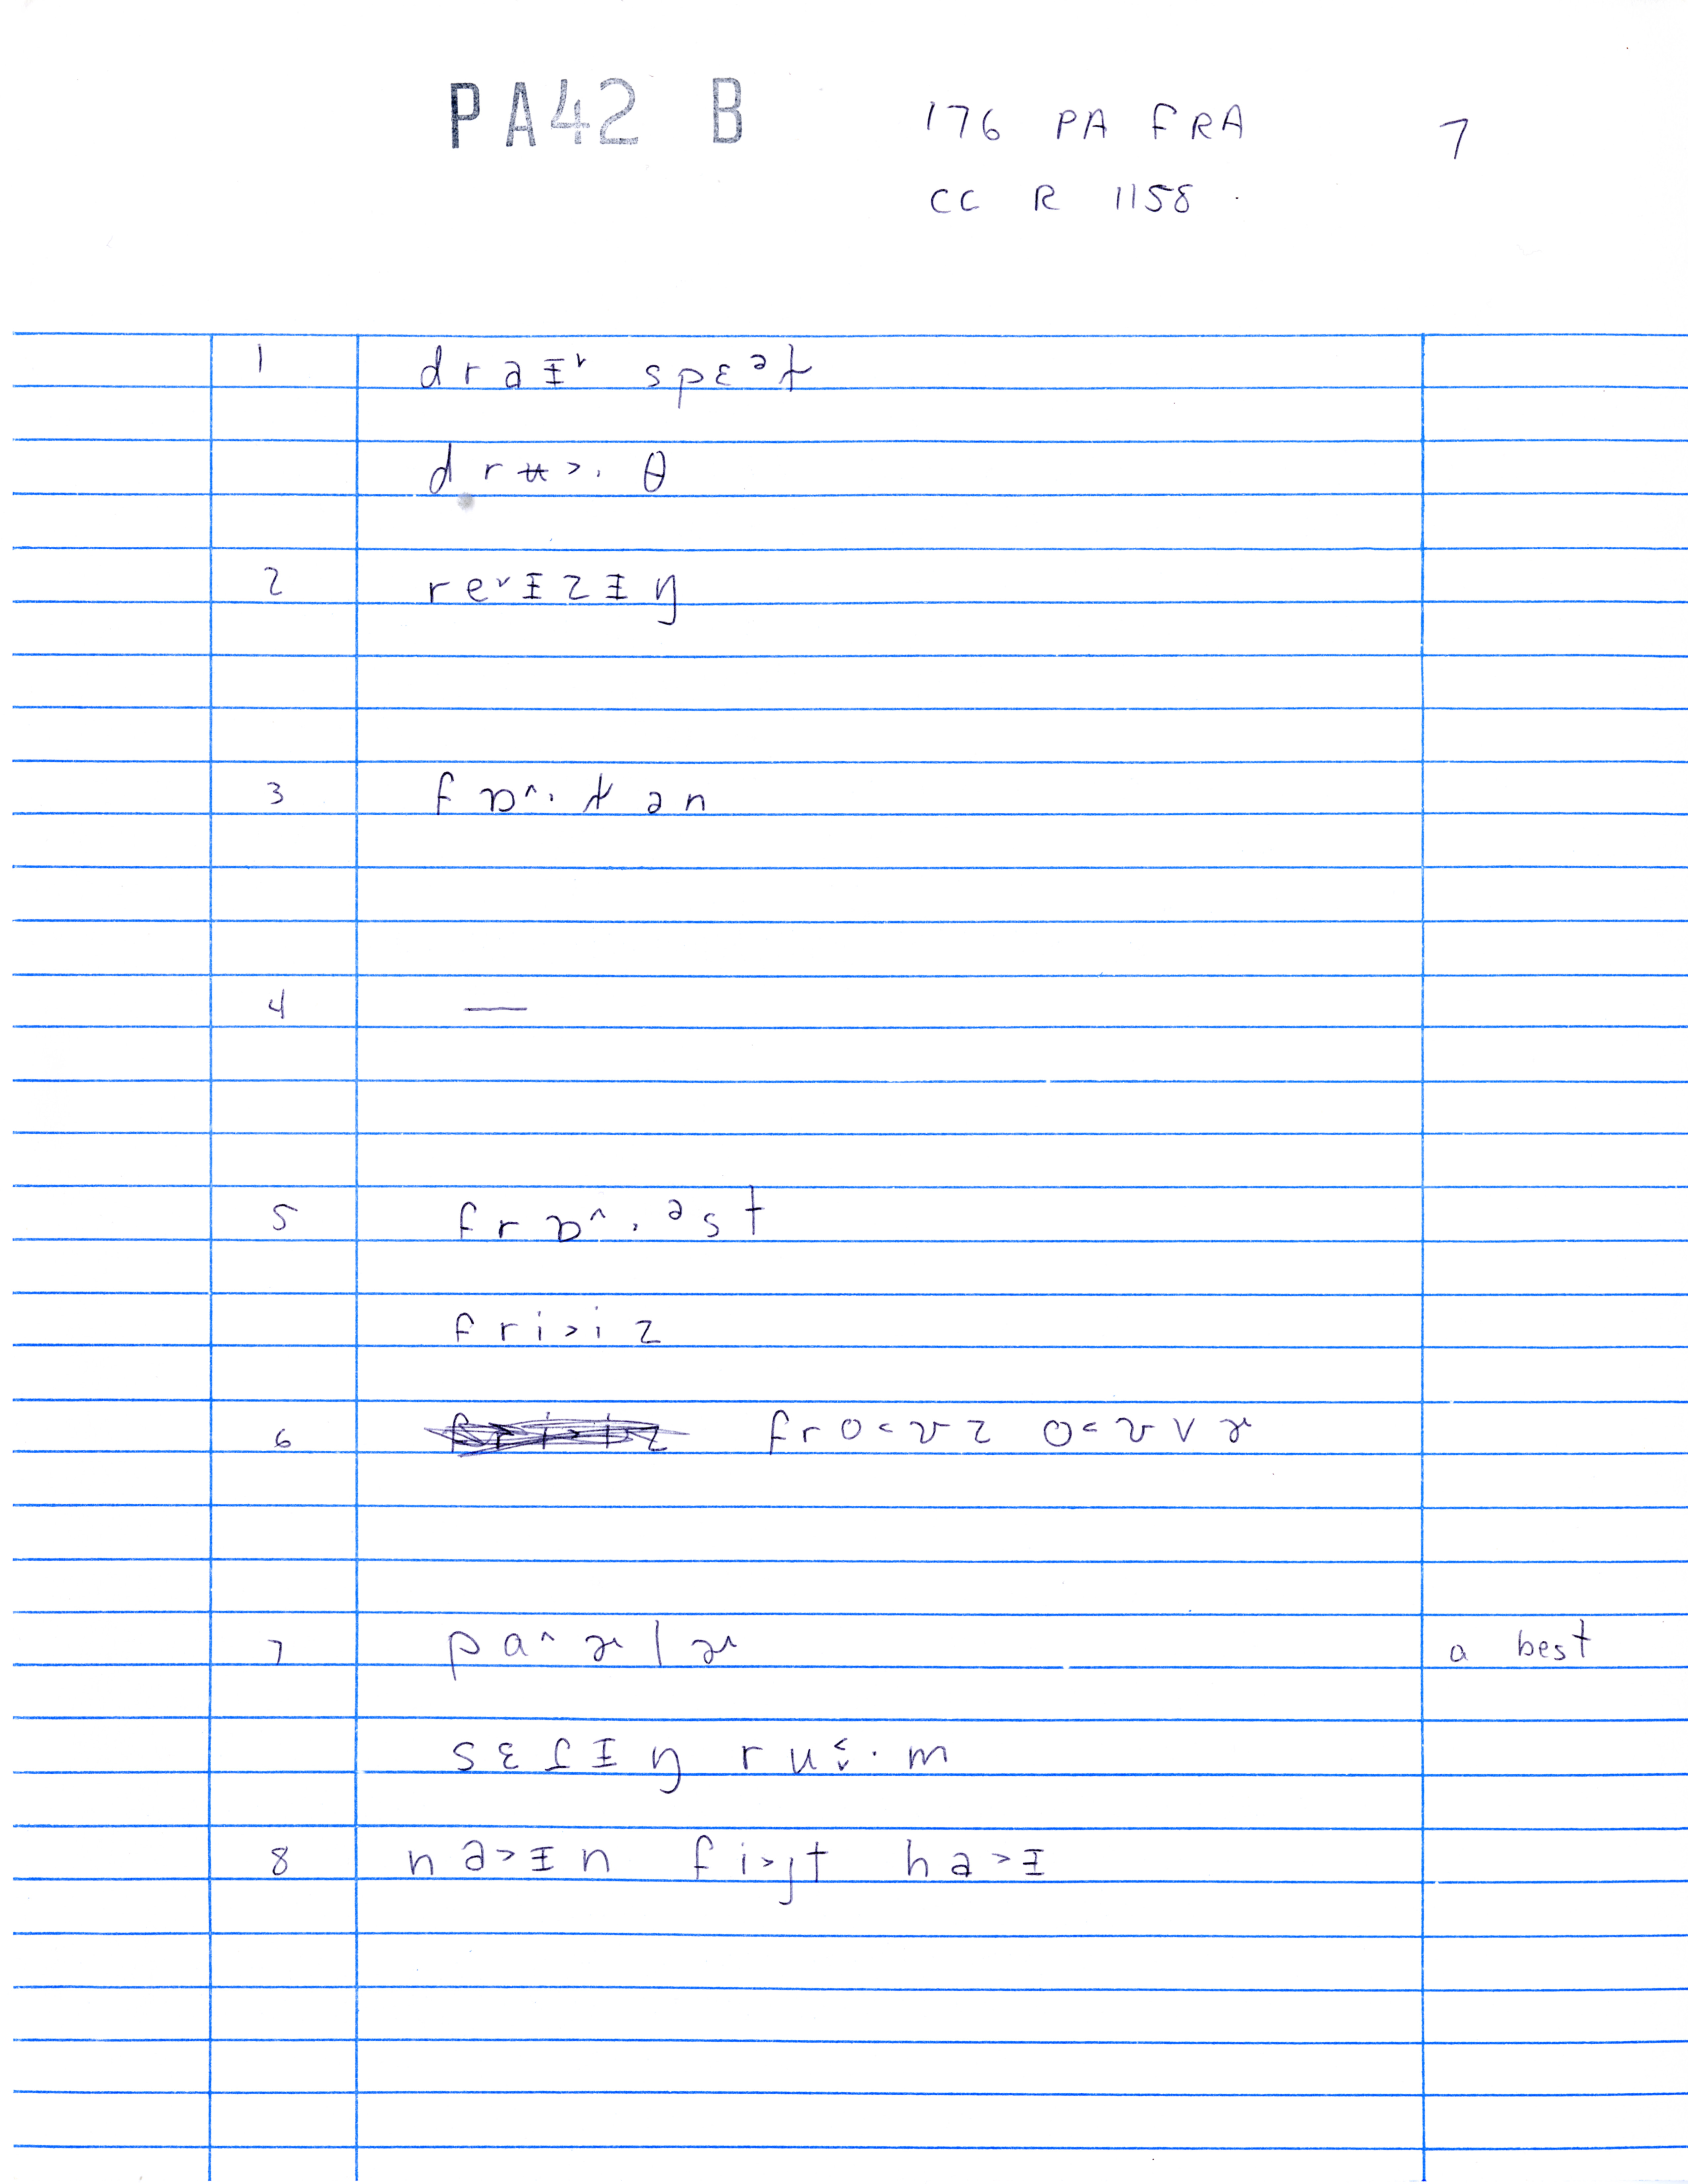 PA42 B 176 PA FRA 7
CC R 1158.
1 draɪ˅ spɛᵊt
drʉ˃. θ
2 re˅ɪzɪŋ
3 fɒ^. ɾ ən
4 —
5 frɒ^. ᵊst
fri˃iz
6 fro˂ʊz o˂ʊvɚ
7 pa^ɚlɚ a best
sɛʃɪŋ ru˂˅.m
8 na˃ɪn fi˃ʃt ha˃ɪ